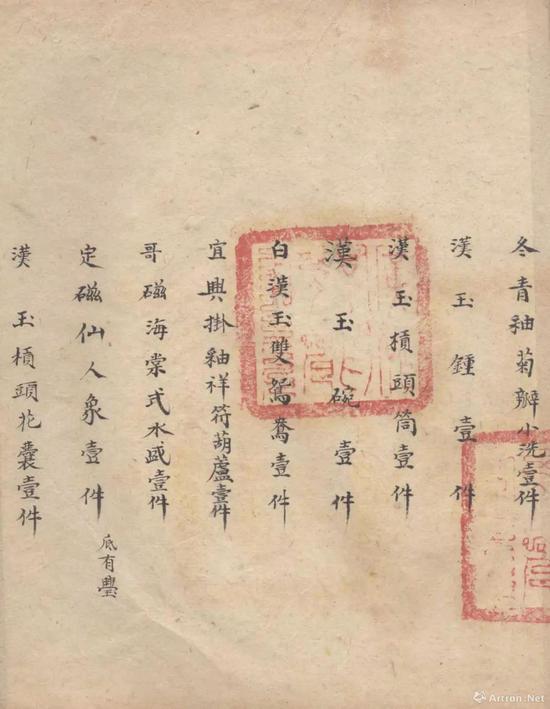 冬青釉菊瓣小洗壹件
漢玉鍾壹件
漢玉槓頭筒壹件
漢玉碗壹件
白漢玉雙鴛鴦壹件
宜興掛釉祥符葫蘆壹件
哥磁海棠式水盛壹件
定磁仙人象壹件
底有豐
漢玉槓頭花囊壹件
Artron.Net